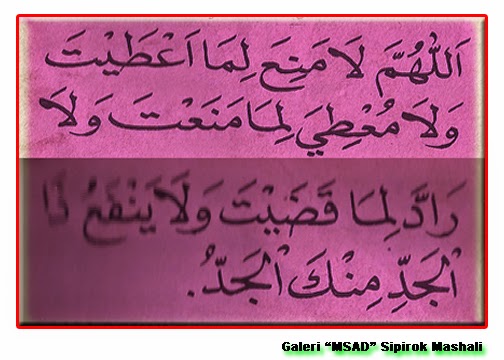 اَللّٰهُمَّ لَا مَنِعَ لِمَا اَعْطَيْتَ
وَلَا مُعْطِيَ لِمَا مَنَعْتَ وَلَا
رَادَّ لِمَا قَضَيْتَ وَلَا يَنْفَعُ ذَا
اْلجَدِّ مِنْكَ اْلجَدُّ.
Galeri “MSAD” Sipirok Mashali